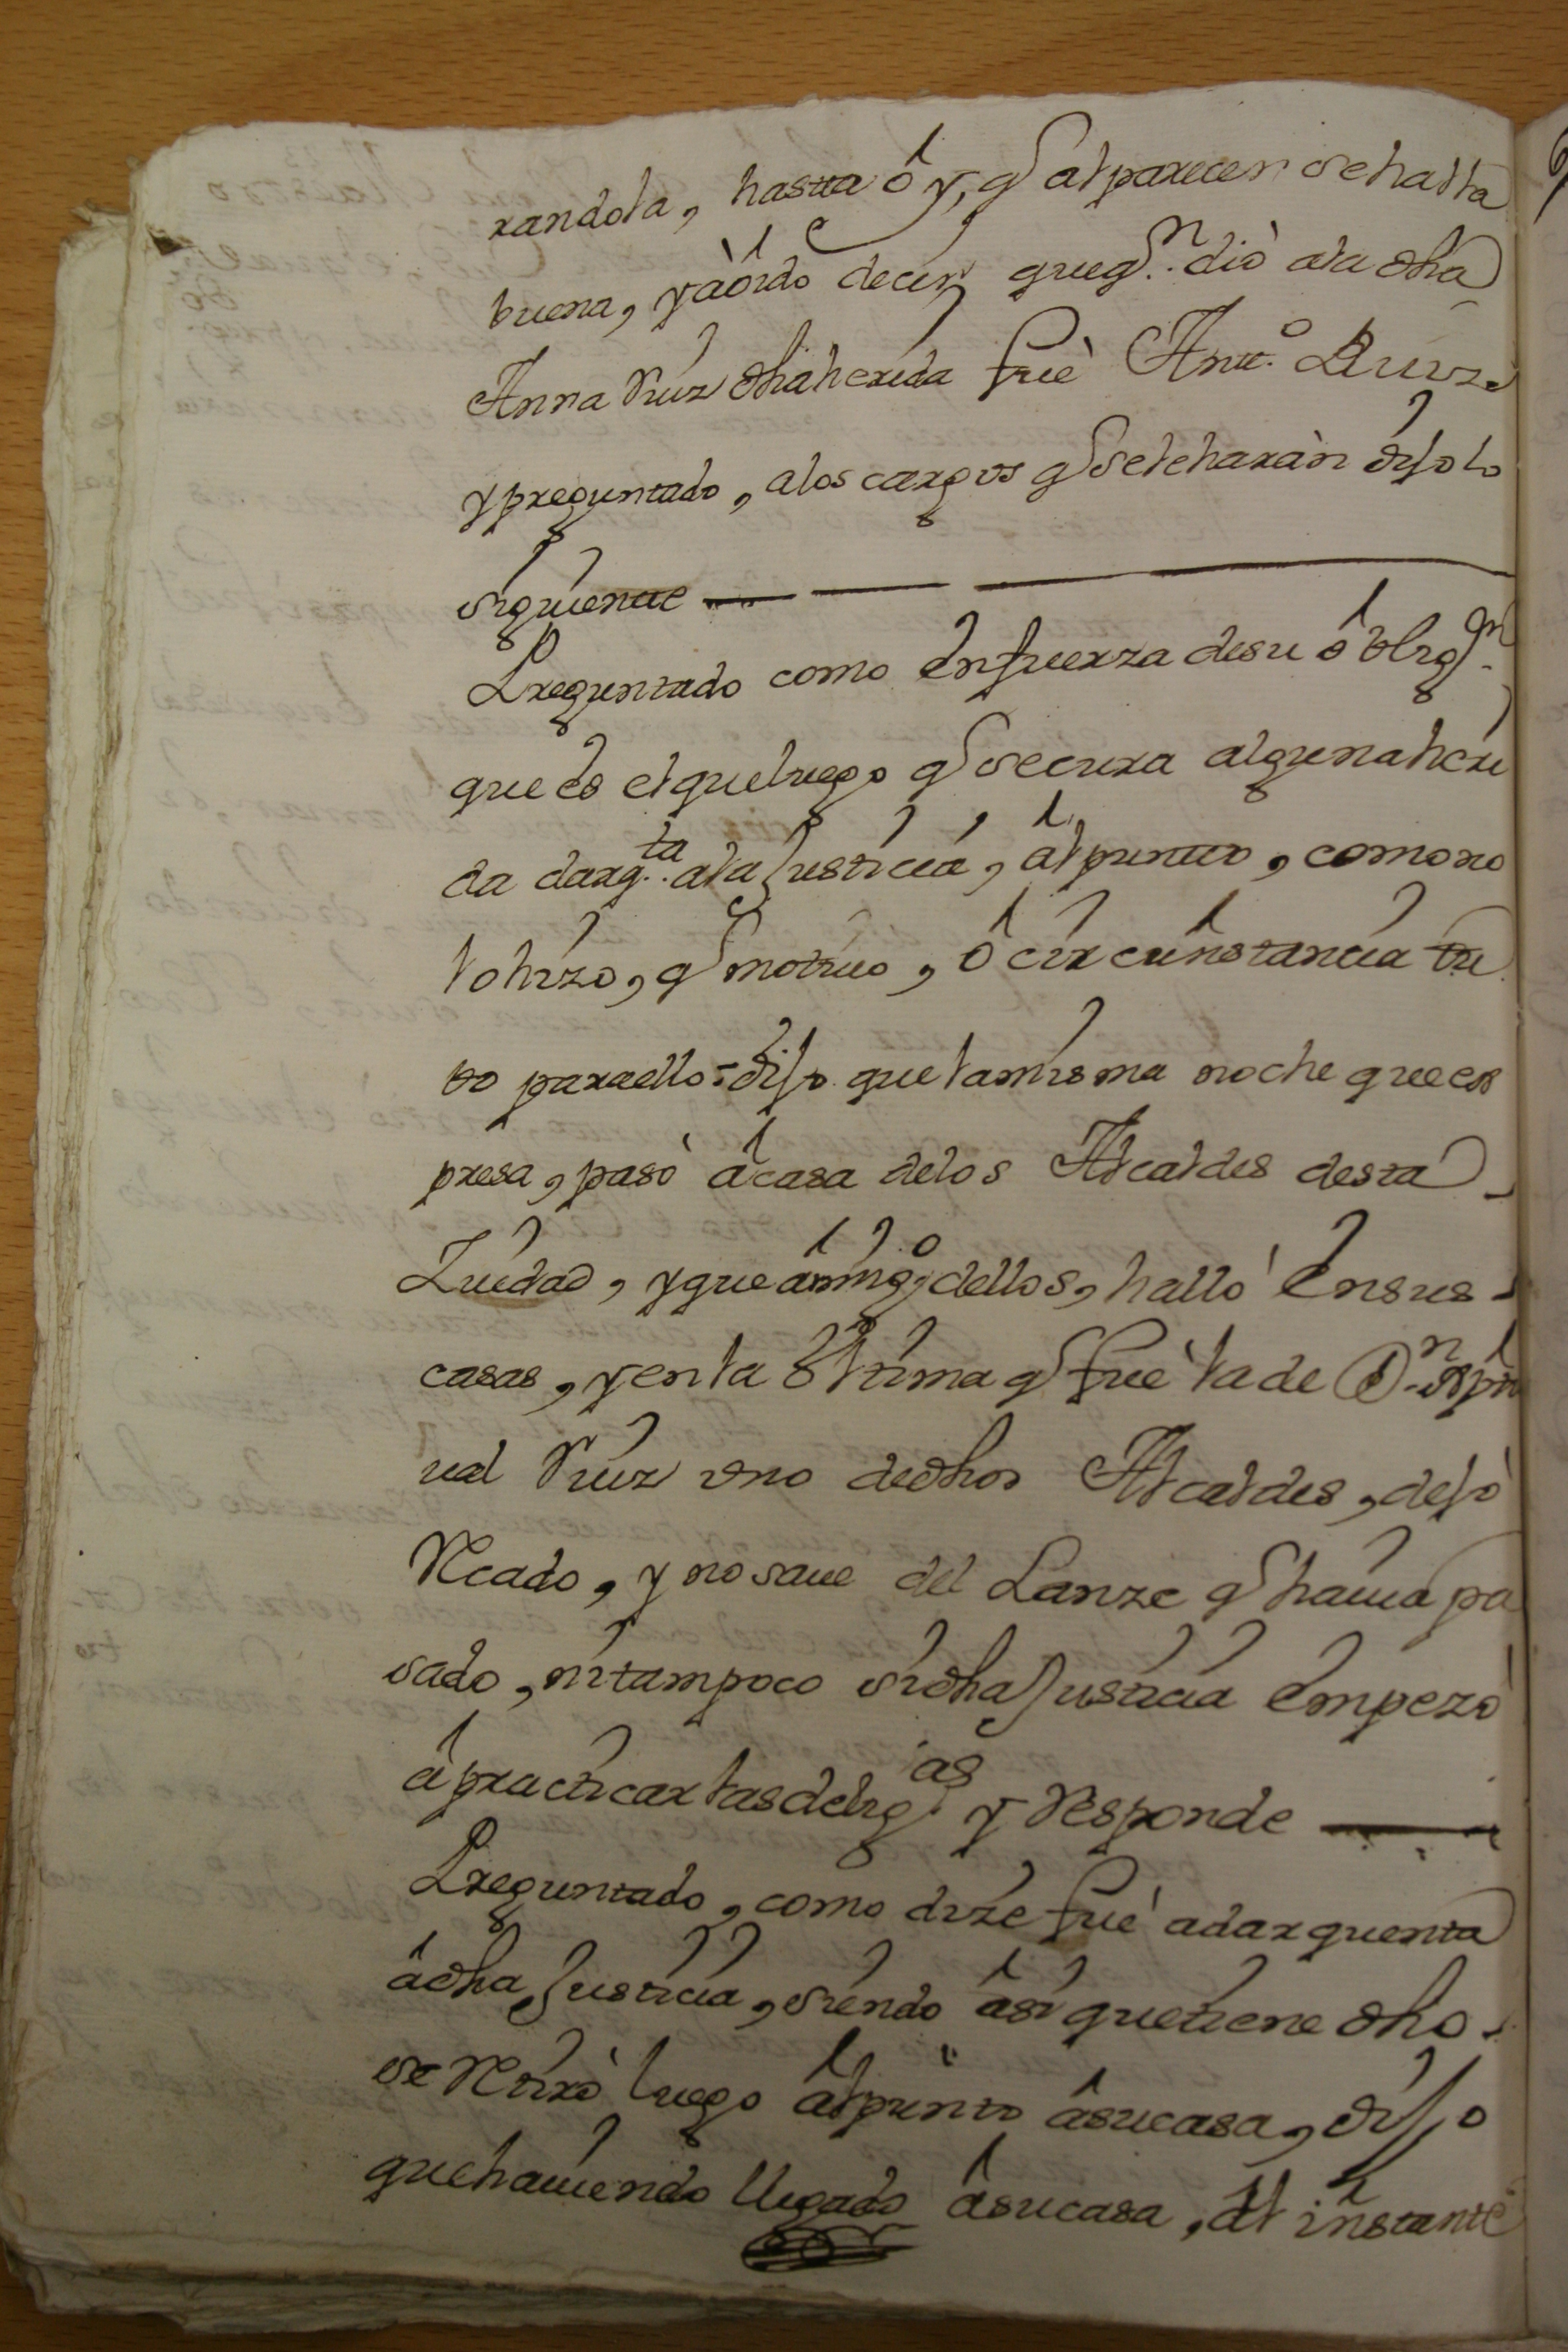 randola, hasta oy, q al parecer se halla
buena, y a oido decir que q.n dió a la dha
Anna Ruiz dha herida fue Ant.o Ruiz
y preguntado, a los cargos q se le harán dijo lo
siguiente
Preguntado como en fuerza de su oblig.n
que es el que luego q se cura alguna heri
da dar q.ta a la Justicia, al punto, como no
lo hizo, q motivo, o circunstancia tu
vo para ello: dijo que la misma noche que ex
presa, pasó a casa de los Alcaldes desta
Ziudad, y que a ning.o dellos, halló en sus
casas, y en la ultima q fue la de D.n
ual Ruiz uno de dhos Alcaldes, dejó
Recado, y no save del Lanze q havia pa
sado, ni tampoco si dha Justicia empezó
a practicar las delig.as y Responde
Preguntado, como dize fue a dar quenta
a dha Justicia, siendo asi que tiene dho
se Retiró luego al punto a su casa, dijo
que haviendo llegado a su casa, al instante